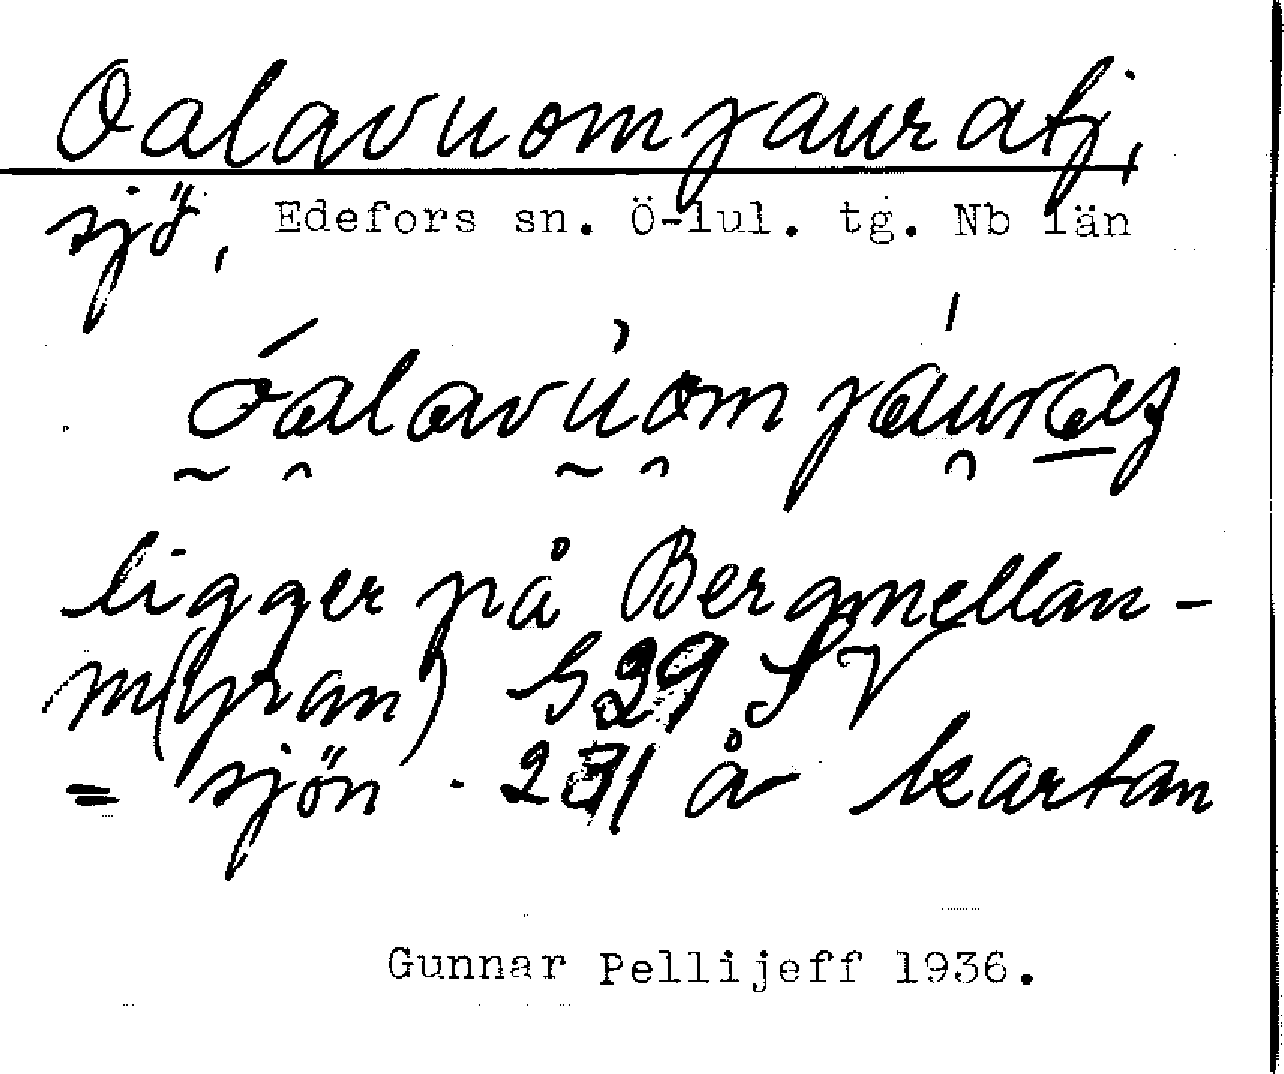 Oalavuomjauratj,
sjö, Edefors sn. Ö-lul. tg. Nb län
óalavuomjáuraʒ
ligger på Bergmellan-
m(yran) S 29 SV
= sjön · 231 å kartan
Gunnar Pellijeff 1936.